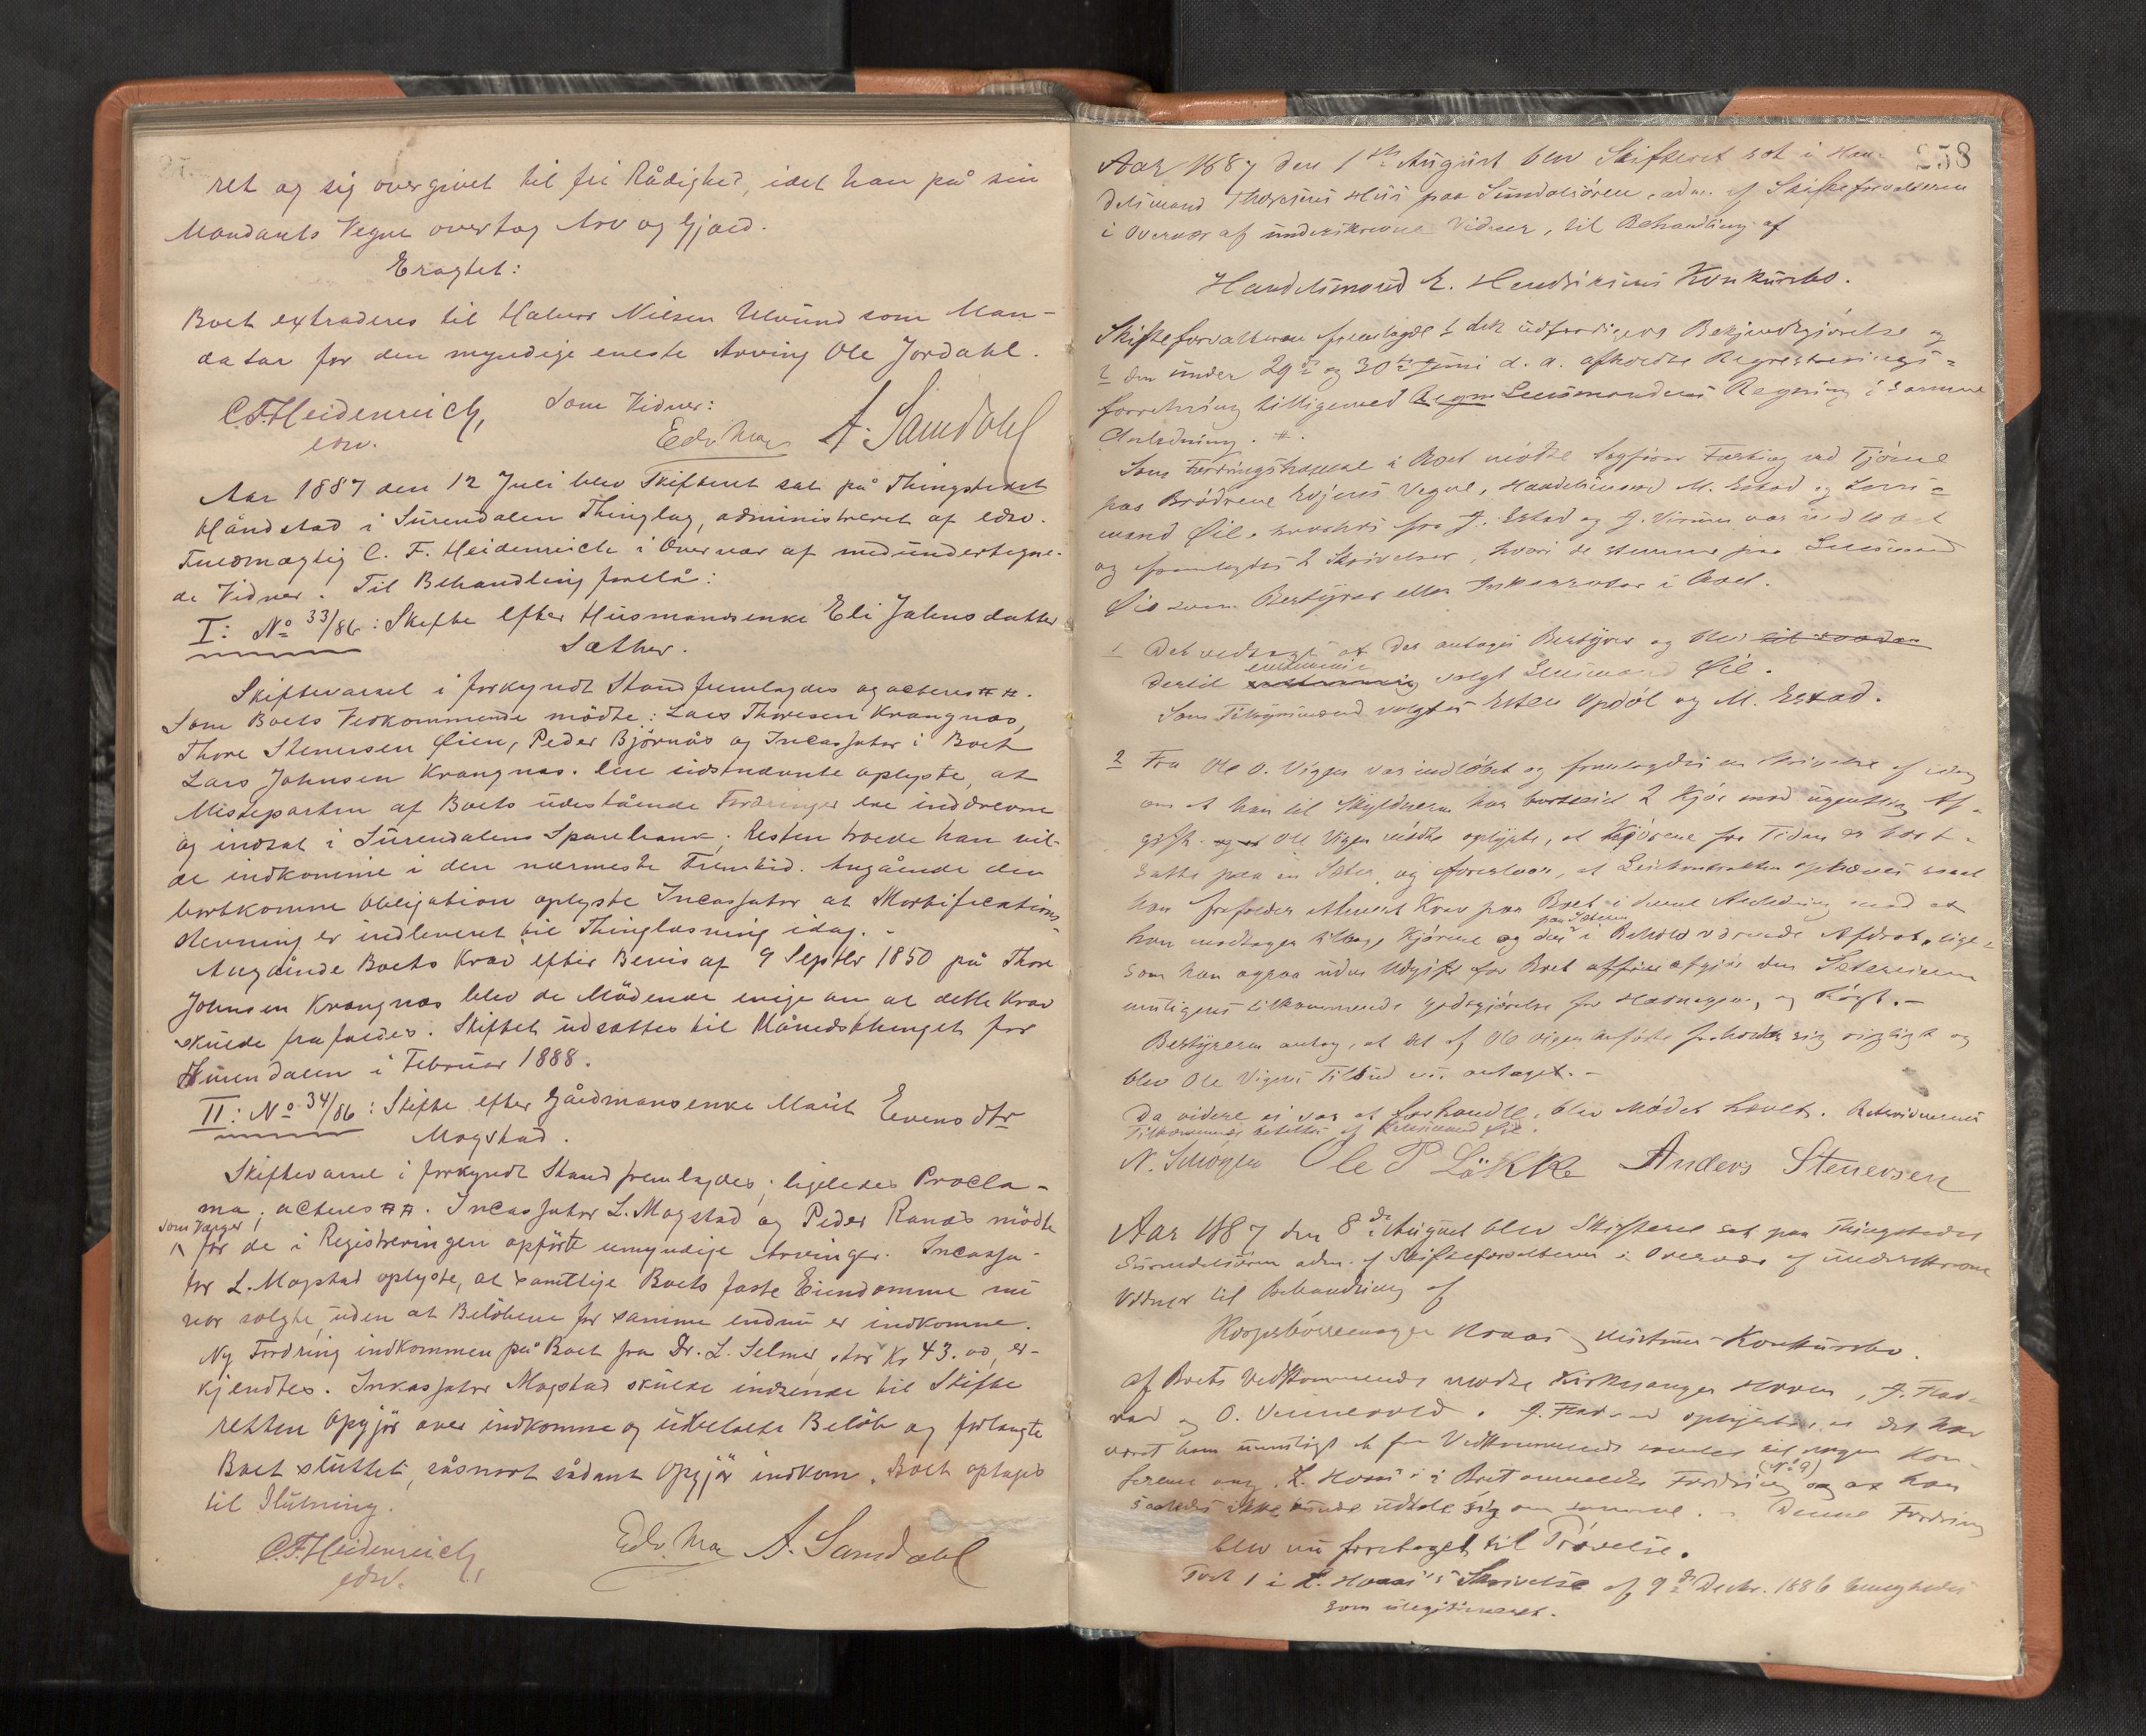 ret og sig overgivet til fri Rådighed, idet han på sin
Mandants Vegne overtog Arv og Gjæld.
Eragtet:
Boet extraderes til Halvor Nilsen Ulvund som Man-
datar for den myndige eneste Arving Ole Jordahl.
C.F.Heidenreich, Som Vidner:
edsv. Edv. Moe A. Samdahl
Aar 1887 den 12 Juli blev Skifteret sat på Thingstedet
Håndstad i Surendalen Thinglag, administreret af edsv.
Fuldmægtig C. F. Heidenreich i Overvær af medundertegne-
de Vidner. Til Behandling forelå:
I: No 33/86: Skifte efter Husmandsenke Eli Johnsdatter
Sæther.
Skiftevarsel i forkyndt Stand fremlagdes og acteres ##.
Som Boets Vedkommende mødte: Lars Thoresen Krangnæs,
Thore Stenersen Øien, Peder Björnås og Incassator i Boet
Lars Johnsen Krangnæs. Den sidstnævnte oplyste, at
Misteparten af Boets udestående Fordringer ere inddrevne
og indsat i Surendalens Sparebank; Resten troede han vil-
de indkomme i den nærmeste Fremtid. Angående den
bortkomne Obligation oplyste Incassator at Mortifications-
stevning er indleveret til Thinglæsning idag. -
Angående Boets Krav efter Bevis af 9 Septbr 1850 på Thore
Johnsen Krangnæs blev de Mödende enige om at dette Krav
skulde frafaldes. Skiftet udsattes til Månedsthinget for
Surendalen i Februar 1888.
II: No 34/86: Skifte efter Gårdmansenke Marit Evensdtr
Mogstad.
Skiftevarsel i forkyndt Stand fremlagdes; ligeledes Procla-
ma; acteres ##. Incassator L. Mogstad og Peder Ranæs mödte
som Værger
for de i Registreringen opførte umyndige Arvinger. Incassa-
tor L. Mogstad oplyste, at samtlige Boets faste Eiendomme nu
var solgte, uden at Belöbene for samme endnu er indkomne.
Ny Fordring indkommen på Boet fra Dr. L. Selmer, stor Kr 43.00, er-
kjendtes. Inkassator Mogstad skulde indsende til Skifte
retten Opgjör over indkomne og udbetalte Belöb og forlangte
Boet sluttet, såsnart sådant Opgjör indkom. Boet optages
til Slutning.
C.F.Heidenreich, Edv. Moe A. Samdahl
edsv.
258
Aar 1887 den 1ste August blev Skifteret sat i Han-
delsmand Huus paa Sundalsören, adm. af Skifteforvalteren
i Overvær af underskrevne Vidner, til Behandling af
Handelsmand E. Hendriksens Konkursbo.
Skifteforvalteren fremlagde 1 den udfærdigede Bekjendtgjörelse og
2 den under 29de og 30te Juni d. a. afholdte Registrerings-
forretning tilligemed Regn Lensmandens Regning i samme
Anledning. #.
Som Fordringshavere i Boet mødte Sagförer ved
paa Brödrene Vegne, Handelsmand M. Estad og Lens-
mand Øie. fra J. Estad og J. var indlöbet
og fremlagdes 2 Skrivelser, hvori de stemme paa Lensmand
Øie som Bestyrer eller Inkassator i Boet.
1 Det vedtages at der antages Bestyrer og blev til saadan
enstemmig
dertil valgt Lensmand Øie.
Som Tilsynsmænd valgtes Esten Opdöl og M. Estad.
2 Fra Ole O. Vigen var indlöbet og fremlagdes en Skrivelse af idag
om at han til Skyldneren har bortleiet 2 Kjör mod Af-
gift. Ole Vigen mödte oplyste, at Kjörene for Tiden er bort-
satte paa en Sæter, og foreslaar, at Leiekontrakten ophæves saat
han frafalder Krav paa Boet i denne Anledning mod at
paa Sætren
han modtager tilbage Kjörene og den i Behold værende Afdrot, lige-
som han ogsaa uden Udgift for Boet afgjör den
muligens tilkommende godtgjörelse for Havnegang og Rögt. -
Bestyreren antog, at det af Ole Vigen anförte forholder sig rigtigt og
blev Ole Vigens Tilbud antaget. -
Da videre ei var at forhandle, blev Mödet hævet. Retsvidnernes
Tilkommende betaltes af Lensmand Øie.
N. Ole P Lökke Anders Stenersen
Aar 1887 den 8de August blev Skifteret sat paa Thingstedet
Surendalsören adm. af Skifteforvalteren i Overvær af underskrevne
Vidner til Behandling af
Konkursbo.
af Boets Vedkommende mødte Kirkesanger , J.
og O. . J. oplyste, at det har
været ham umuligt at faa Vedkommende samlet til nogen Kon-
(No 9)
ferense ang. i Boet anmeldte Fordring og at han
saaledes ikke kunde udtale sig om samme. - Denne Fordring
blev nu foretaget til Prövelse.
Post 1 i Skrivelse af 9de Decbr. 1886 benegtedes
som ulegitimeret.